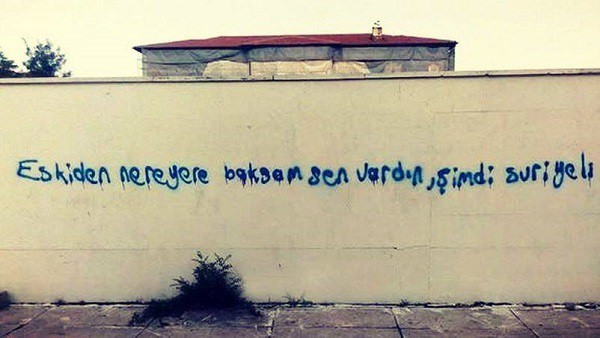 Eskiden nereyere baksam sen vardın, şimdi suriyeli